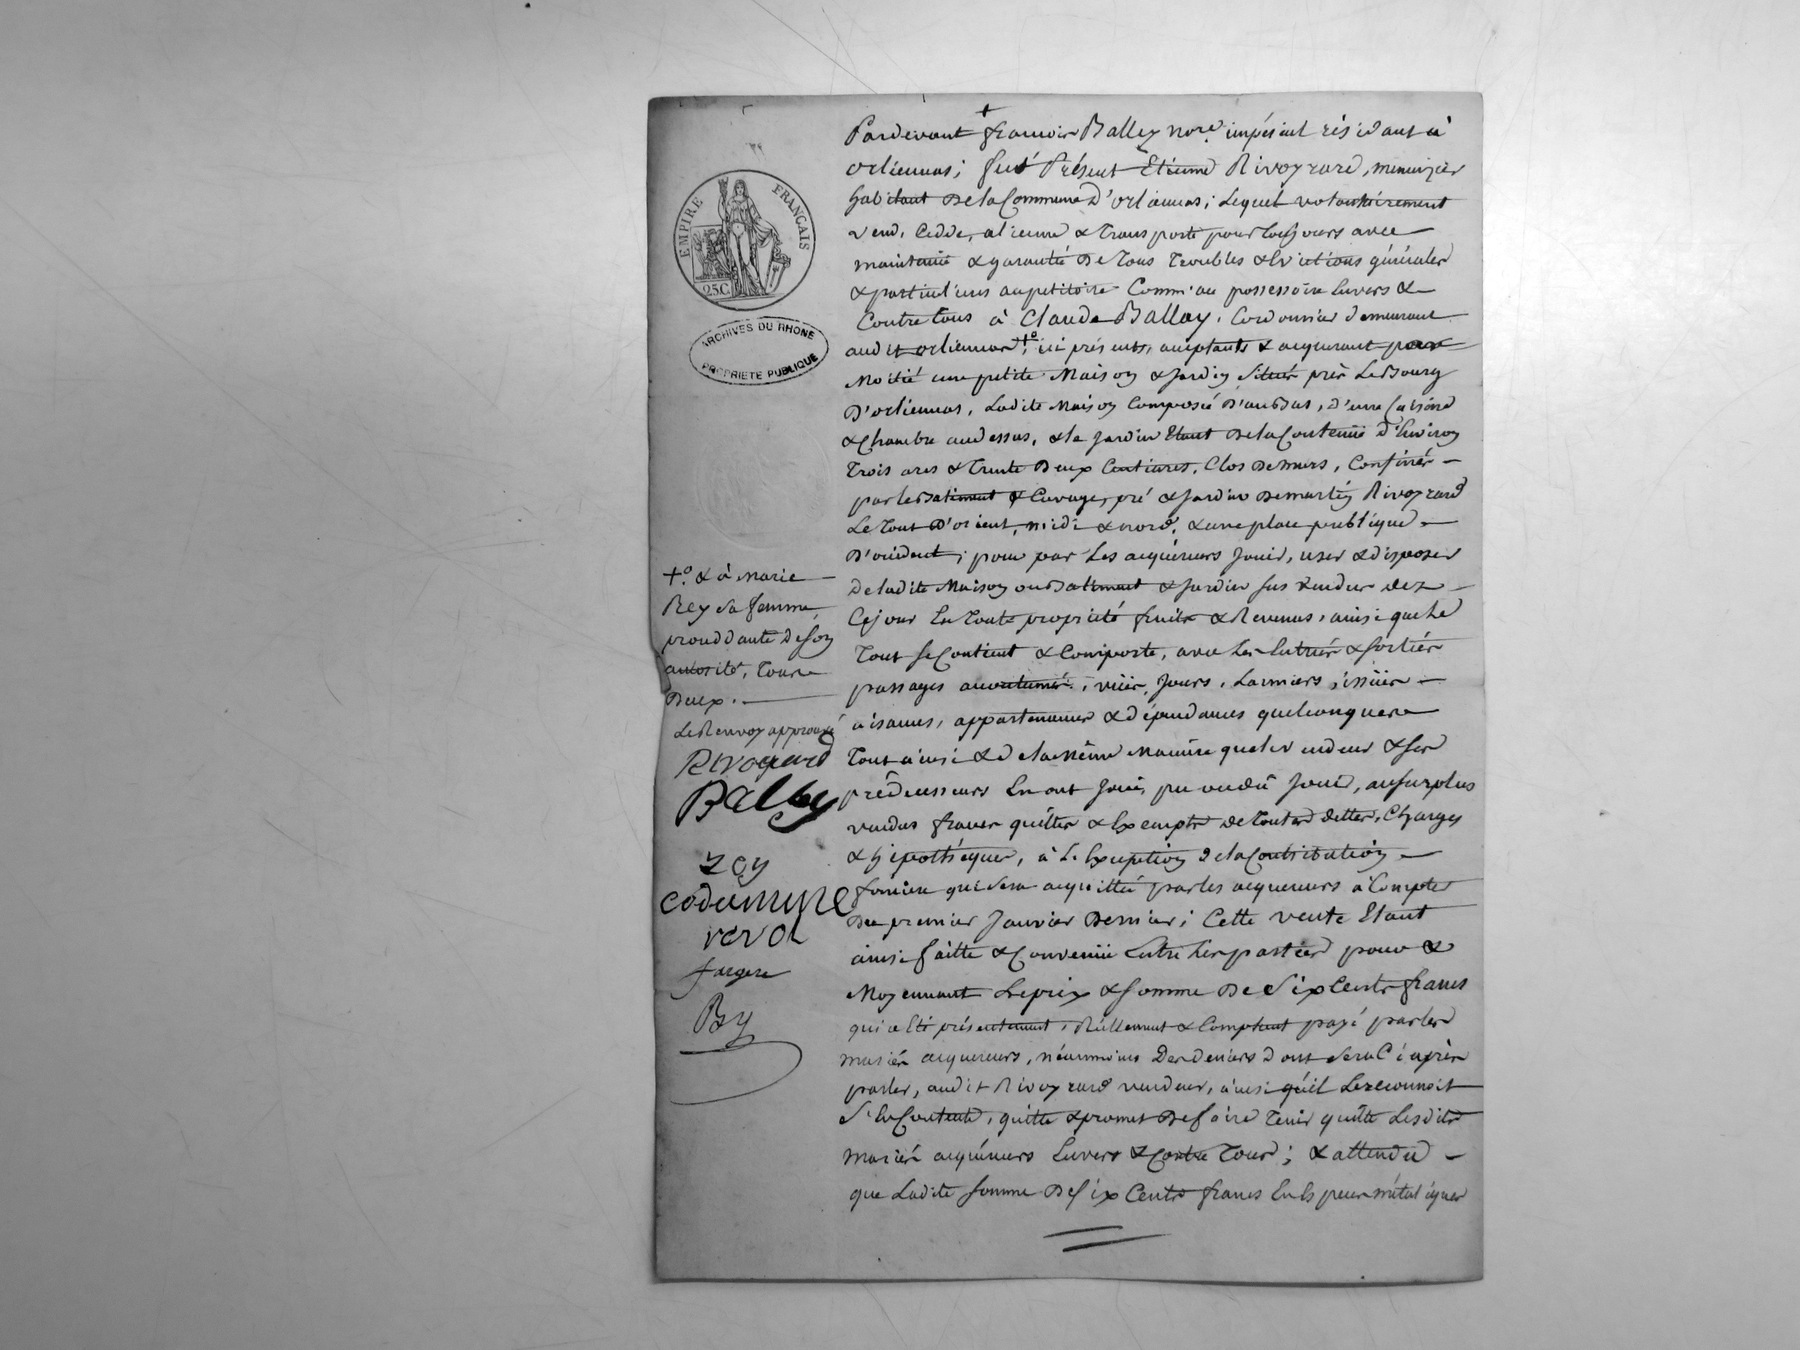 EMPIRE FRANÇAIS
25C
ARCHIVES DU RHONE
PROPRIETE PUBLIQUE
Pardevant françois Balley nore. impérial résidant à
orliennas; fut Présent Etienne Rivoyrard, menuizier
habitant De la Commune D'orliennas; Lequel volontairement
vend, Cedde, alienne & transporte pour toujours avec
maintenüe & garantie De tous Troubles & Evictions générales
& particulieres au petitoire Comm'au possessoire Envers &
Contre tous à Claude Balley, Cordonnier demeurant
audit orliennas +º, ici présents, acceptants & acquerant par
Moitié une petite Maison & Jardin situés près Le Bourg
D'orliennas, Ladite Maison Composée D'un bas, d'une Cuisine
& Chambre au dessus, & le Jardin Etant De la Contenüe d'Environ
Trois ares & Trente Deux Centiares, Clos De murs, Confinés
par les Batiment & Cuvage, pré & Jardin De martin Rivoyrard
Le Tout D'orient, midi & nord, & une place publique
D'occident; pour par Les acquéreurs Jouir, user & disposer
De ladite Maison ou Batiment & Jardin sus vendus dez
Cejour En Toute propriété fruits & Revenus, ainsi que le
Tout se Contient & Comporte, avec Les Entrées & sorties
passages accoutumés, vües, Jours, Larmiers, issües
aisances, appartenances & dépendances quelconques
Tout ainsi & de la Même Manière que le vendeur & ses
prédecesseurs En ont Joui, pu ou dû Jouir, au surplus
vendus francs quittes & Exempts De Toutes dettes, Charges
& hipothèques, à L'Exception de la Contribution
fonciere qui sera acquittée par les acquereurs à Compter
Du premier Janvier Dernier; Cette vente Etant
ainsi faitte & Convenüe Entre Les parties pour &
Moyennant Le prix & somme De Six Cents francs
qui a Eté présentement, Réellement & Comptant payé par les
mariés acquereurs, néanmoins Des deniers dont sera Ci après
parler, audit Rivoyrard vendeur, ainsi qu'il Le reconnoit
S'En Contente, quitte & promet De faire Tenir quitte Lesdits
mariés acquéreurs Envers & Contre Tous; & attendu
que Ladite somme De Six Cents francs En Especes métaliques
+º. & à Marie
Rey sa femme
procéddante De son
autorité, Tous
Deux.
Le Renvoy approuvé
Rivoyrard
Balley
rey
codamine
revol
fargere
By